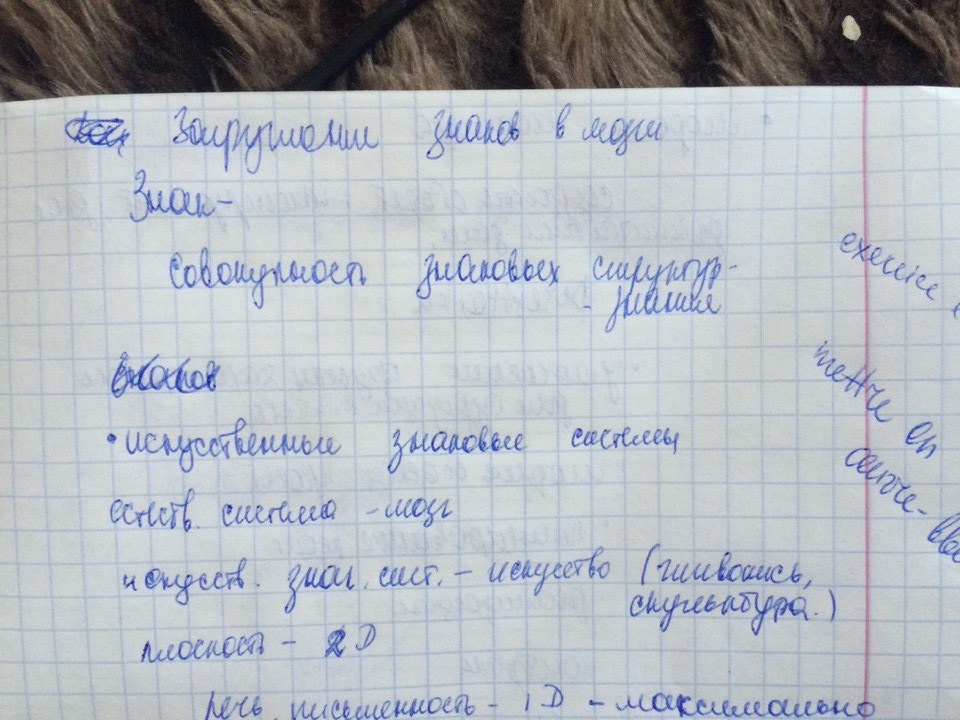 знаков в мозги
Знак-
совокупность знаковых структур-
- знания
• искуственные знаковые системы
естеств. система - мозг
искусств. знак. сист. - искуство (живопись,
скульптура.)
плоскость - 2D
речь, письменность - 1D - максимально